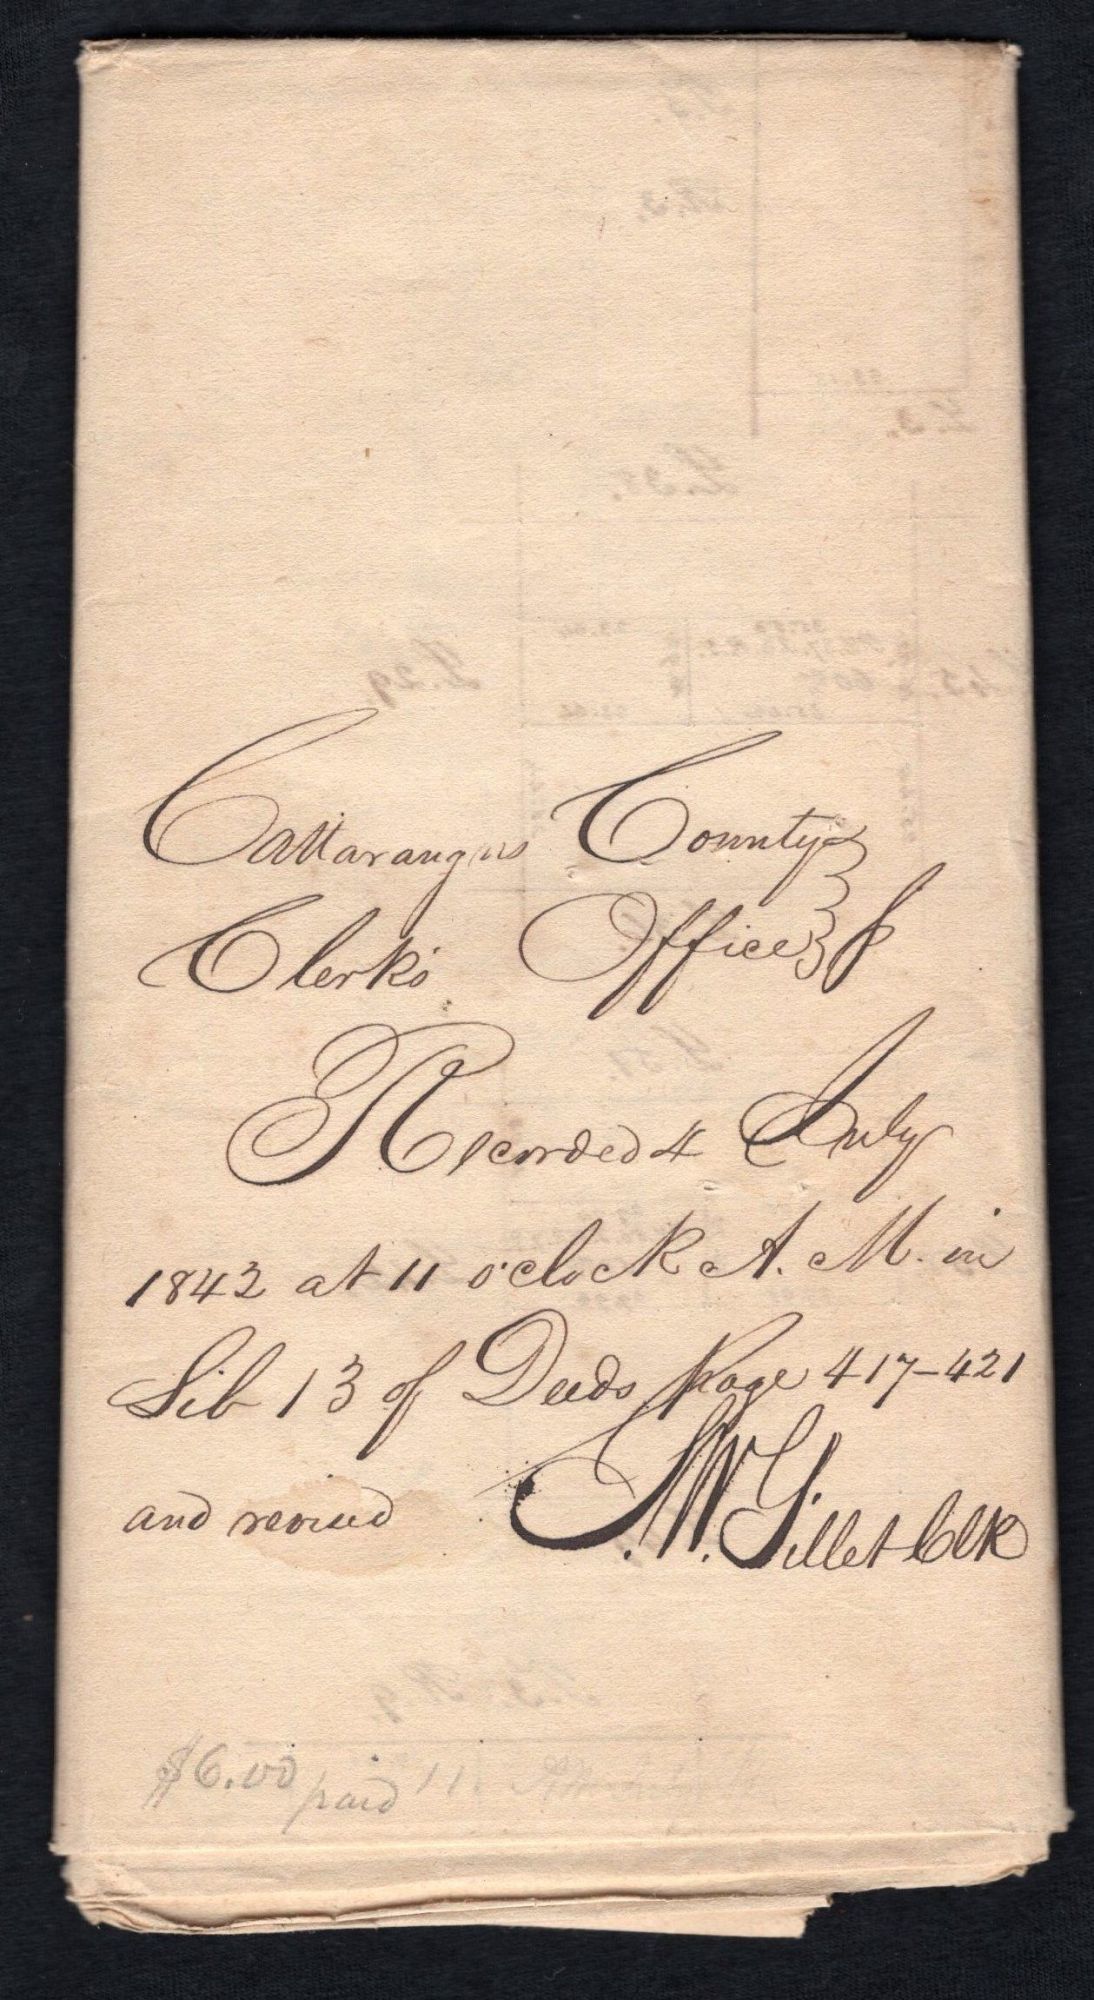 Cattaraugus County
Clerk's Office } s
Recorded 4 July
1842 at 11 o'clock A. M. in
Lib 13 of Deeds page 417-421
and revised W. Gillet Clk
$6.00 paid